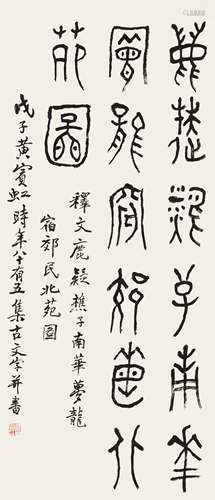 鹿疑樵子南華
夢龍宿郊民北
苑圖
釋文鹿疑樵子南華夢龍
宿郊民北苑圖
戊子黃賓虹時年八十有五集古文字并書